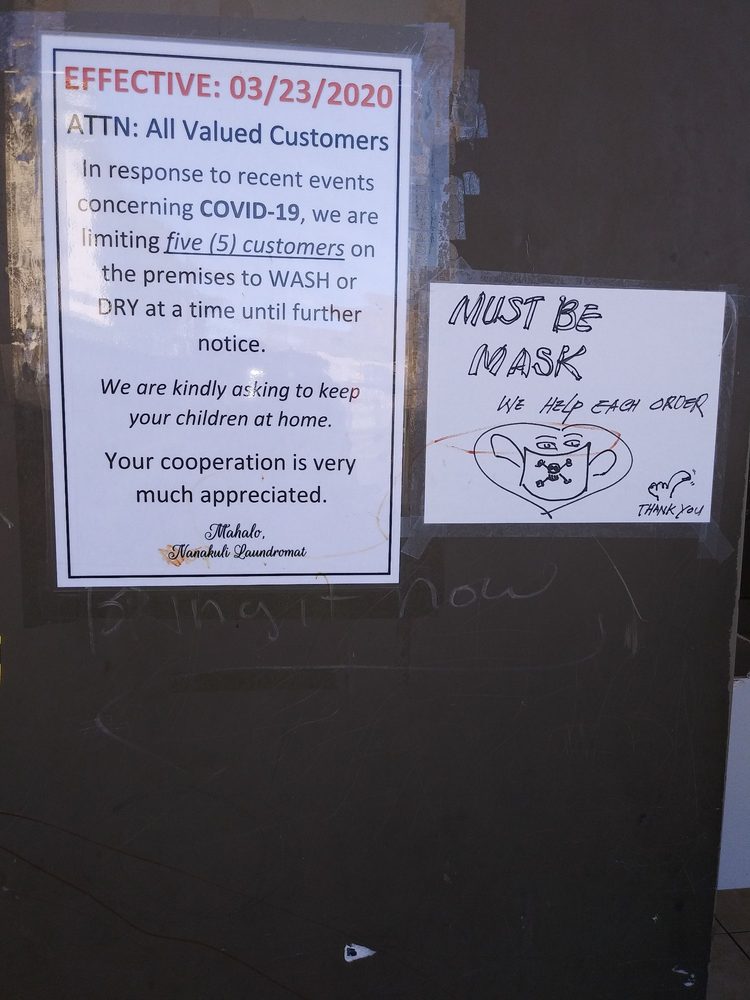 EFFECTIVE: 03/23/2020
ATTN: All Valued Customers
In response to recent events
concerning COVID-19, we are
limiting five (5) customers on
the premises to WASH or
DRY at a time until further
notice.
We are kindly asking to keep
your children at home.
Your cooperation is very
much appreciated.
Mahalo,
Nanakuli Laundromat
MUST BE
MASK
WE HELP EACH ORDER
THANK YOU
it now